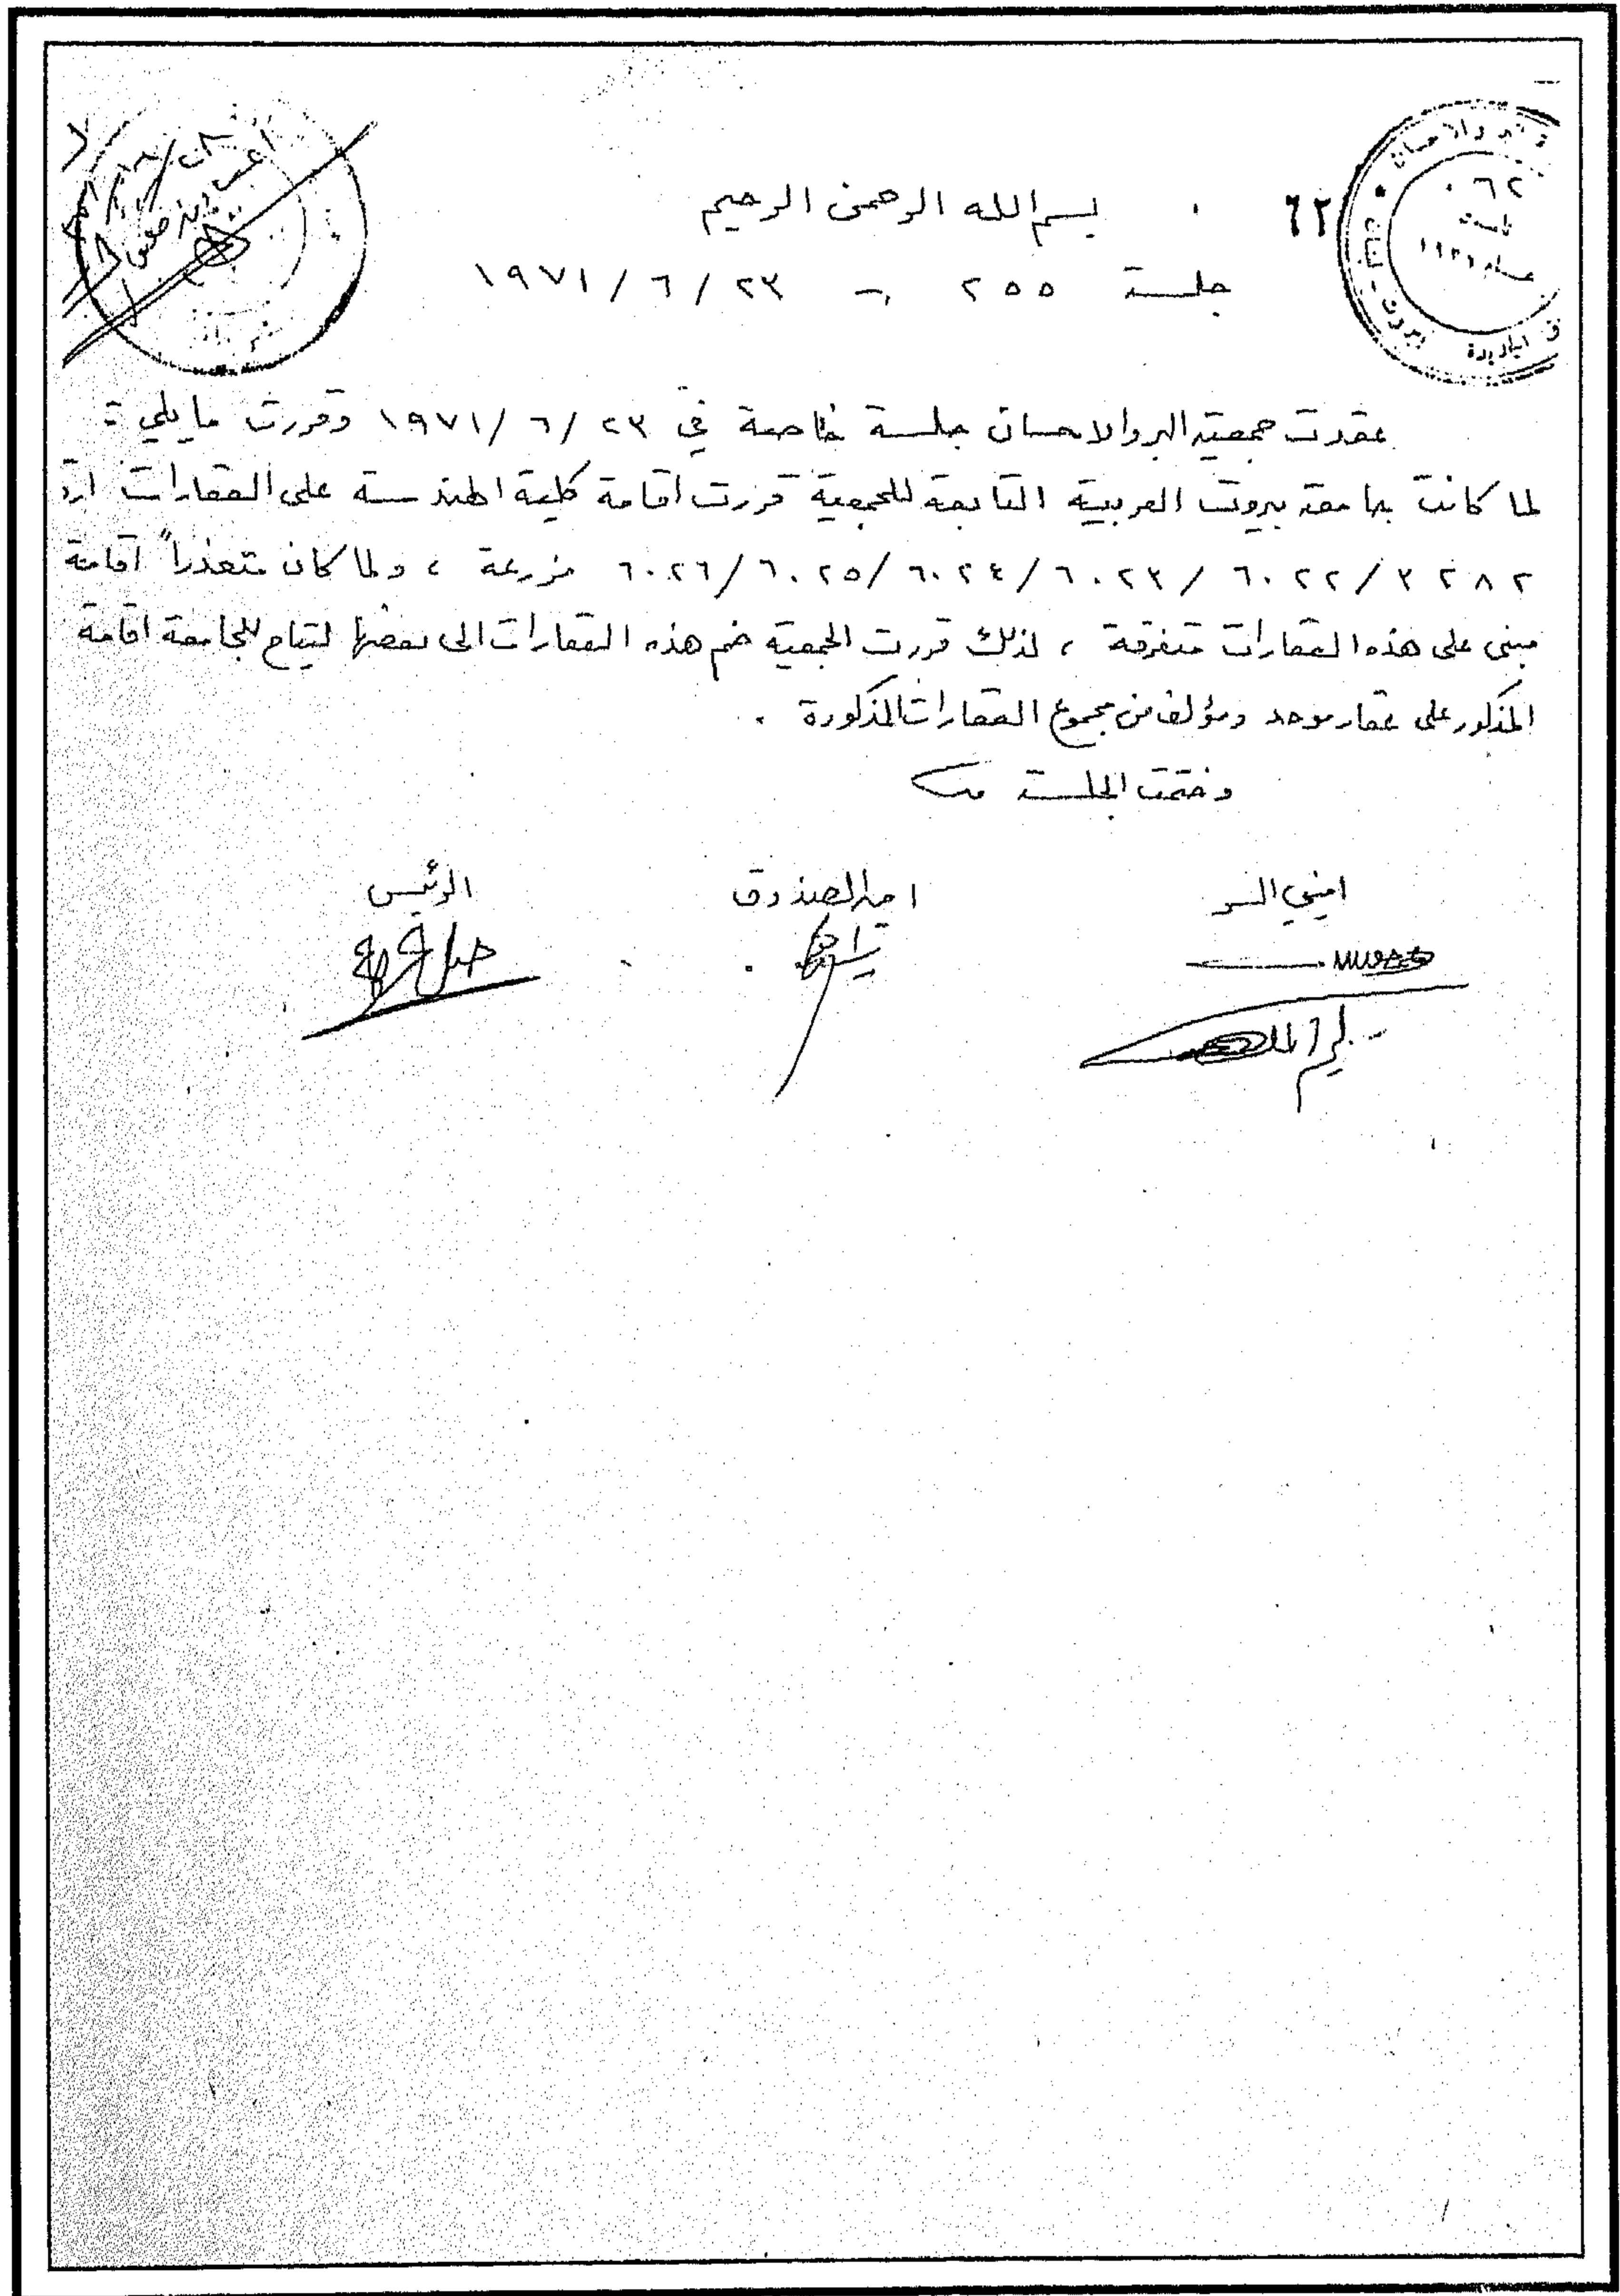 ٦٢
بسم الله الرحمن الرحيم
جلسة ٢٥٥ - ٢٣ / ٦ / ١٩٧١
عقدت جمعية البر والاحسان جلسة خاصة في ٢٣ / ٦ / ١٩٧١ وقررت ما يلي :
لما كانت جامعة بيروت العربية التابعة للجمعية قررت اقامة كلية الهندسة على العقارات
٣٢٨٢ / ٦٠٢٢ / ٦٠٢٣ / ٦٠٢٤ / ٦٠٢٥ / ٦٠٢٦ مزرعة ، ولما كان متعذراً اقامة
مبنى على هذه العقارات متفرقة ، لذلك قررت الجمعية ضم هذه العقارات الى بعضها ليتاح للجامعة اقامة
المذكور على عقار موحد ومؤلف من مجموع العقارات المذكورة .
وختمت الجلسة
اميني السر
امين الصندوق
الرئيس
البر والاحسان
٠٦٢
تأسست
بيروت - لبنان